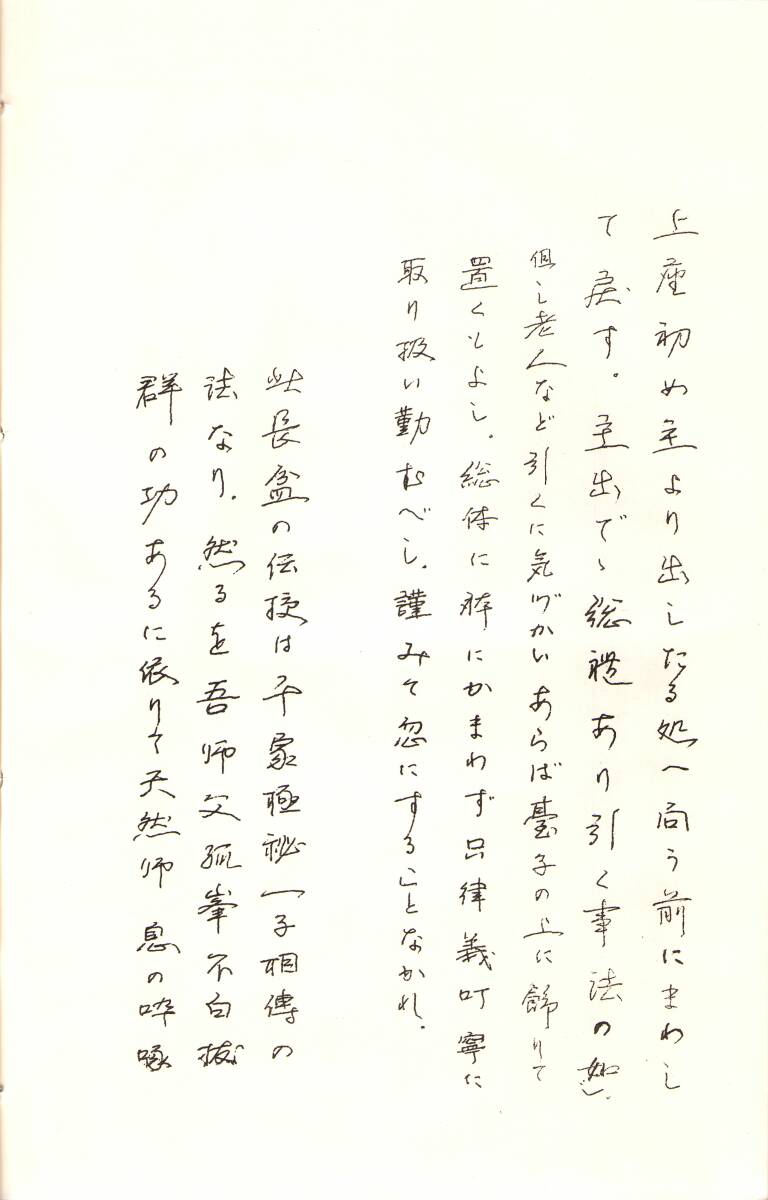 上座初め主より出したる処へ向う前にまわし
て戻す。主出で、総禮あり引く事法の如し。
但し老人など引くに気づかいあらば臺子の上に飾りて
置くもよし。総体に形にかまわず只律義叮寧に
取り扱い勤むべし。謹みて忽にすることなかれ。
此長盆の伝授は千家極秘一子相傳の
法なり。然るを吾師父孤峯不白抜
群の功あるに依りて天然師 息の啐啄